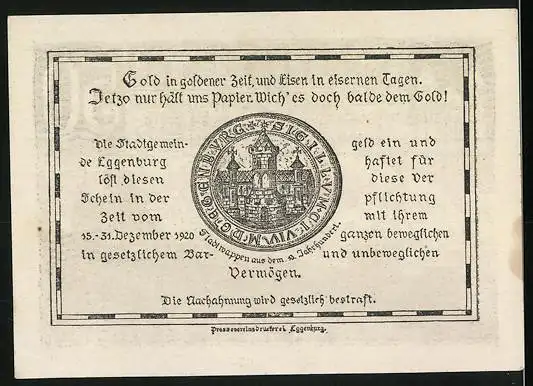 Gold in goldener Zeit, und Eisen in eisernen Tagen.
Jetzo nur hält uns Papier. Wich' es doch balde dem Gold!
Die Stadtgemein-
de Eggenburg
löst diesen
Schein in der
Zeit vom
15.-31. Dezember 1920
in gesetzlichem Bar-
geld ein und
haftet für
diese Ver
pflichtung
mit ihrem
ganzen beweglichen
und unbeweglichen
Vermögen.
SIGILLVM CIVIVM D EGENBVRG
Stadtwappen aus dem Jahrhundert.
Die Nachahmung wird gesetzlich bestraft.
Pressvereinsdruckerei Eggenburg.